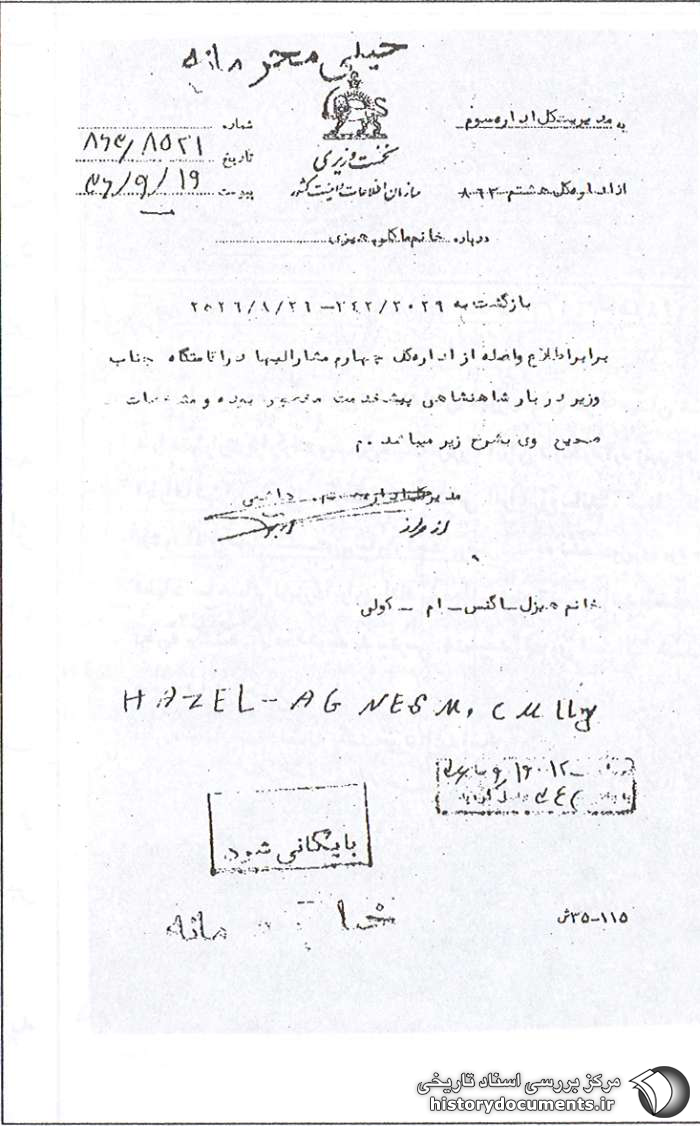 خیلی محرمانه
به مدیریت کل اداره سوم
از اداره کل هشتم ۸۶۳
نخست وزیری
سازمان اطلاعات و امنیت کشور
شماره ۸۶۳/۸۵۲۱
تاریخ ۳۶/۹/۱۹
پیوست
درباره خانم
بازگشت به ۲۰۲۹/۳۴۲ – ۲۵۳۶/۸/۲۱
برابر اطلاع واصله از اداره کل چهارم مشارالیها در اقامتگاه جناب
وزیر دربار شاهنشاهی پیشخدمت مخصوص بوده و مشخصات
صحیح وی بشرح زیر میباشد. م
مدیرکل اداره هشتم
از طرف
خانم هیزل – اگنس – ام – کولی
HAZEL-AGNES M. CUlly
بایگانی شود
خیلی محرمانه
۱۱۵–۳۵ش
مرکز بررسی اسناد تاریخی
historydocuments.ir